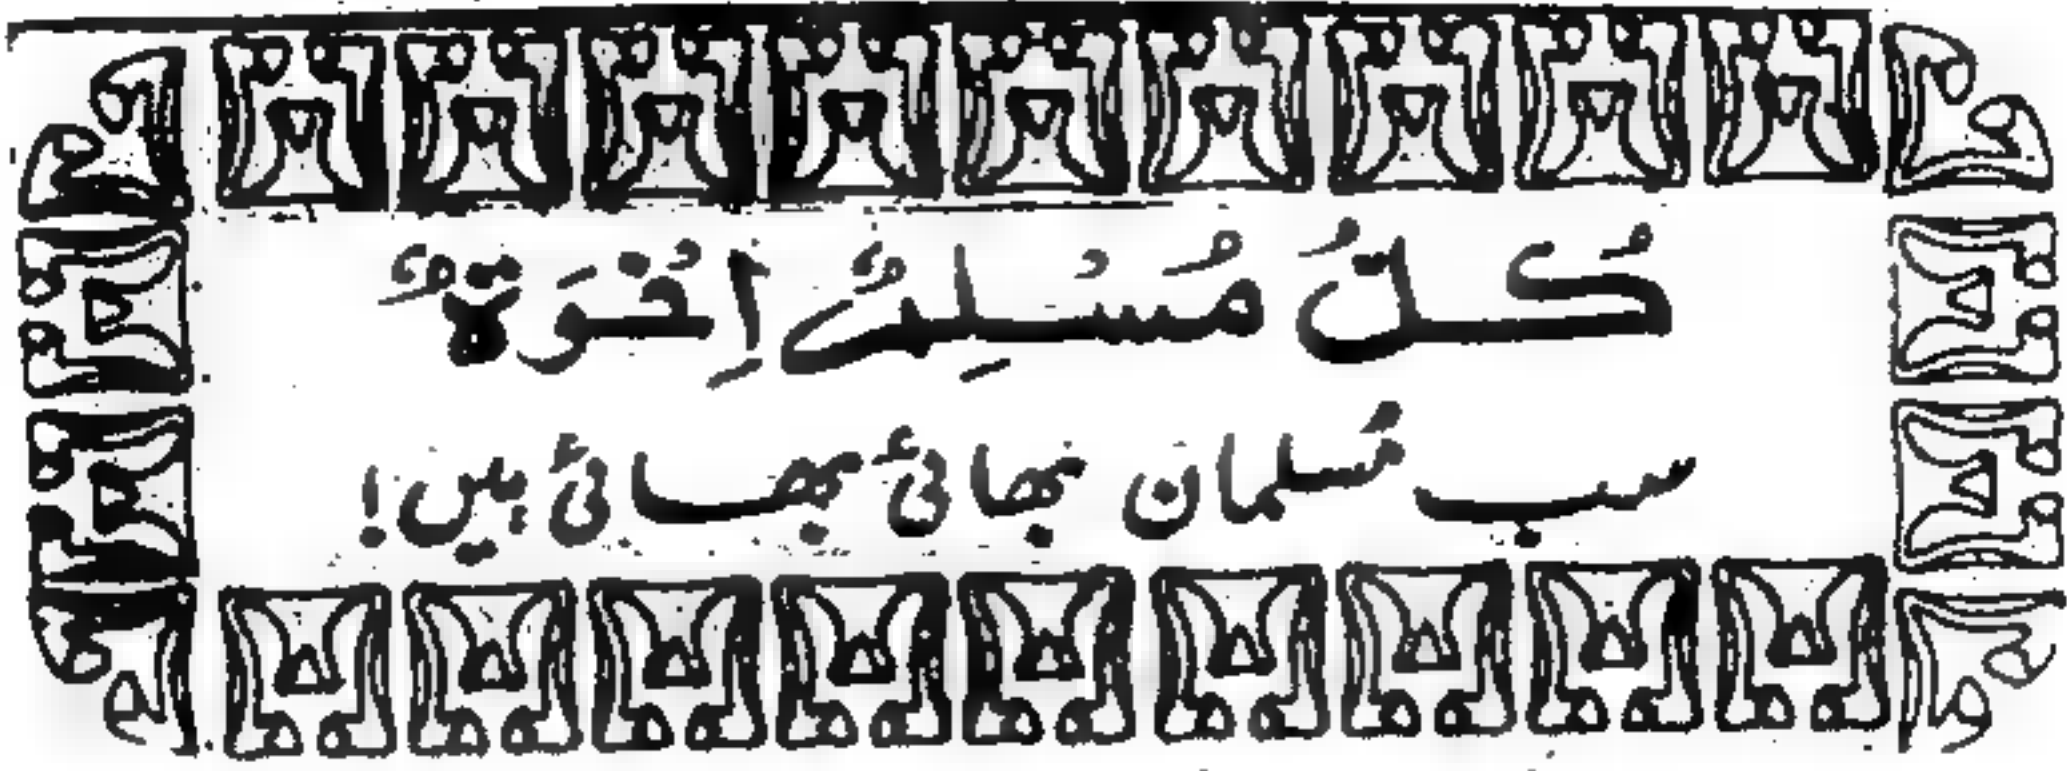 کُلُّ مُسْلِمٌ اِخْوَةٌ
سب مُسلمان بھائی بھائی ہیں!